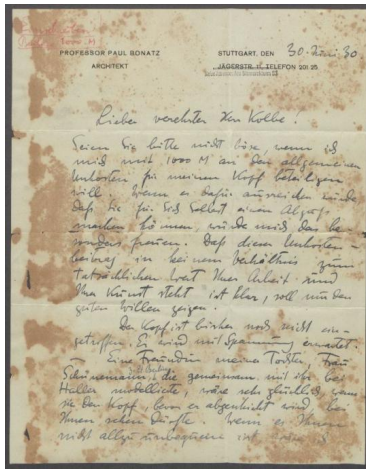 PROFESSOR PAUL BONATZ
ARCHITEKT
STUTTGART, DEN 30. Juni 30
JÄGERSTR. TELEFON 201 25
1000 M
Lieber verehrter Herr Kolbe!
Seien Sie bitte nicht böse, wenn ich
mich mit 1000 M an den allgemeinen
Unkosten für meinen Kopf beteiligen
will. Wenn es dafür ausreichen würde
daß Sie für Sich Selbst einen Abguß
machen können, würde mich das be-
sonders freuen. Daß dieser Unkosten-
beitrag in keinem Verhältnis zum
tatsächlichen Wert Ihrer Arbeit und
Ihrer Kunst steht ist klar, soll nur den
guten Willen zeigen.
Der Kopf ist bisher noch nicht ein-
getroffen. Er wird mit Spannung erwartet.
Eine Freundin meiner Tochter, Frau
Schünemann, die gemeinsam mit ihr bei
Haller modellierte, wäre sehr glücklich wenn
sie den Kopf, bevor er abgeschickt wird bei
Ihnen sehen dürfte. Wenn es Ihnen
nicht allzu unbequem ist